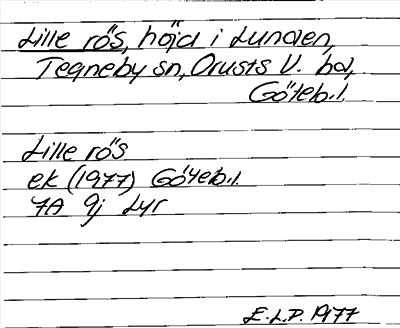 Lille rös, höjd i Lunden,
Tegneby sn, Orusts V. hd,
Göteb.l.
Lille rös
ek (1977) Göteb.l.
7A 9j Lyr
E.L.P. 1977